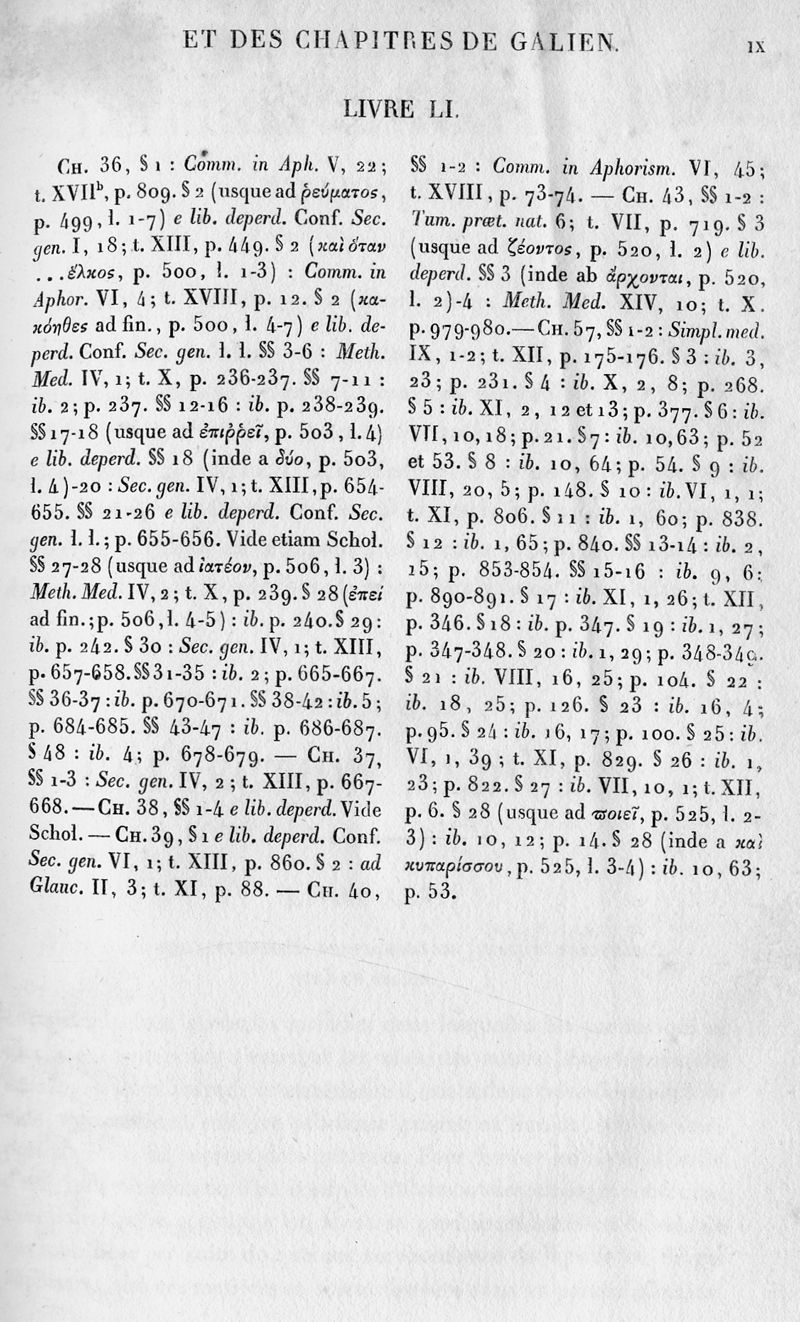 ET DES CHAPITRES DE GALIEN.
IX
LIVRE LI.
CH. 36, § 1 : Comm. in Aph. V, 22;
t. XVIIᵇ, p. 809. § 2 (usque ad ῥεύματος,
p. 499, l. 1-7) e lib. deperd. Conf. Sec.
gen. I, 18; t. XIII, p. 449. § 2 (καὶ ὅταν
...ἕλκος, p. 500, l. 1-3) : Comm. in
Aphor. VI, 4; t. XVIII, p. 12. § 2 (κα-
κόηθες ad fin., p. 500, l. 4-7) e lib. de-
perd. Conf. Sec. gen. l. l. §§ 3-6 : Meth.
Med. IV, 1; t. X, p. 236-237. §§ 7-11 :
ib. 2; p. 237. §§ 12-16 : ib. p. 238-239.
§§ 17-18 (usque ad ἐπιῤῥεῖ, p. 503, l. 4)
e lib. deperd. §§ 18 (inde a δύο, p. 503,
l. 4)-20 : Sec. gen. IV, 1; t. XIII, p. 654-
655. §§ 21-26 e lib. deperd. Conf. Sec.
gen. l. l.; p. 655-656. Vide etiam Schol.
§§ 27-28 (usque ad ἰατέον, p. 506, l. 3) :
Meth. Med. IV, 2; t. X, p. 239. § 28 (ἐπεί
ad fin.; p. 506, l. 4-5) : ib. p. 240. § 29 :
ib. p. 242. § 30 : Sec. gen. IV, 1; t. XIII,
p. 657-658. §§ 31-35 : ib. 2; p. 665-667.
§§ 36-37 : ib. p. 670-671. §§ 38-42 : ib. 5;
p. 684-685. §§ 43-47 : ib. p. 686-687.
§ 48 : ib. 4; p. 678-679. — CH. 37,
§§ 1-3 : Sec. gen. IV, 2; t. XIII, p. 667-
668. — CH. 38, §§ 1-4 e lib. deperd. Vide
Schol. — CH. 39, § 1 e lib. deperd. Conf.
Sec. gen. VI, 1; t. XIII, p. 860. § 2 : ad
Glauc. II, 3; t. XI, p. 88. — CH. 40,
§§ 1-2 : Comm. in Aphorism. VI, 45;
t. XVIII, p. 73-74. — CH. 43, §§ 1-2 :
Tum. præt. nat. 6; t. VII, p. 719. § 3
(usque ad ζέοντος, p. 520, l. 2) e lib.
deperd. §§ 3 (inde ab ἄρχονται, p. 520,
l. 2)-4 : Meth. Med. XIV, 10; t. X.
p. 979-980. — CH. 57, §§ 1-2 : Simpl. med.
IX, 1-2; t. XII, p. 175-176. § 3 : ib. 3,
23; p. 231. § 4 : ib. X, 2, 8; p. 268.
§ 5 : ib. XI, 2, 12 et 13; p. 377. § 6 : ib.
VII, 10, 18; p. 21. § 7 : ib. 10, 63; p. 52
et 53. § 8 : ib. 10, 64; p. 54. § 9 : ib.
VIII, 20, 5; p. 148. § 10 : ib. VI, 1, 1;
t. XI, p. 806. § 11 : ib. 1, 60; p. 838.
§ 12 : ib. 1, 65; p. 840. §§ 13-14 : ib. 2,
15; p. 853-854. §§ 15-16 : ib. 9, 6;
p. 890-891. § 17 : ib. XI, 1, 26; t. XII,
p. 346. § 18 : ib. p. 347. § 19 : ib. 1, 27;
p. 347-348. § 20 : ib. 1, 29; p. 348-349.
§ 21 : ib. VIII, 16, 25; p. 104. § 22 :
ib. 18, 25; p. 126. § 23 : ib. 16, 4;
p. 95. § 24 : ib. 16, 17; p. 100. § 25 : ib.
VI, 1, 39; t. XI, p. 829. § 26 : ib. 1,
23; p. 822. § 27 : ib. VII, 10, 1; t. XII,
p. 6. § 28 (usque ad ποιεῖ, p. 525, l. 2-
3) : ib. 10, 12; p. 14. § 28 (inde a καὶ
κυπαρίσσου, p. 525, l. 3-4) : ib. 10, 63;
p. 53.